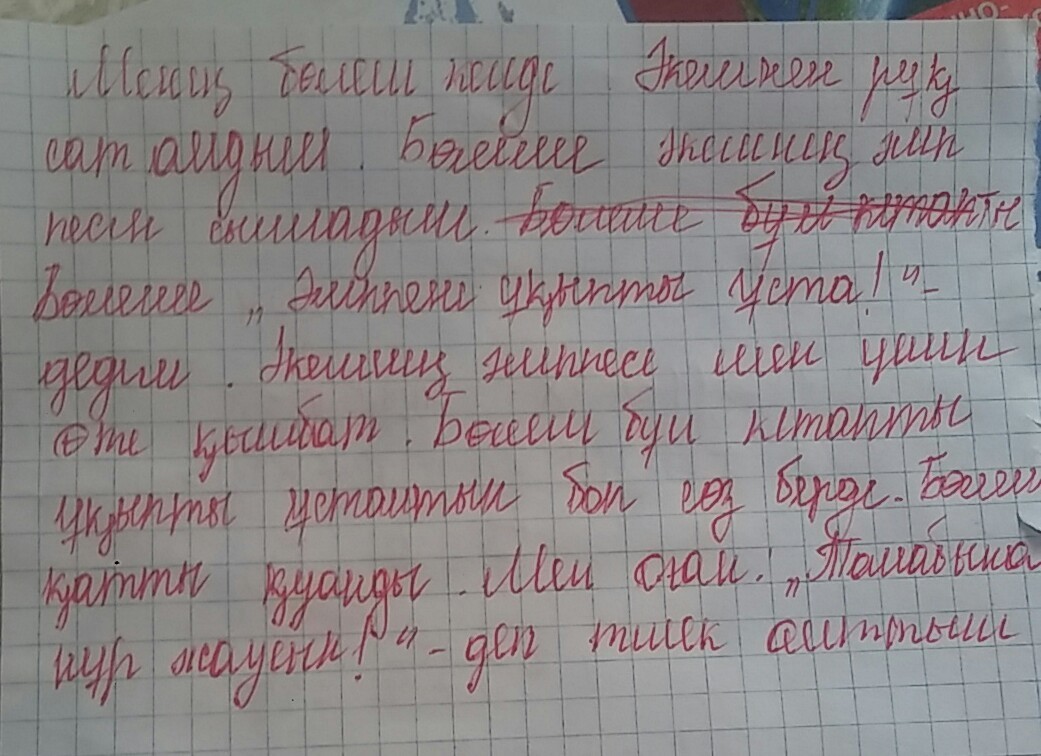 Менің бөлем келді Әжемнен рұқ
сат алдым. Бөлеме әжемнің әліп
песін сыйладым. Бөлеме бұл кітапты
Бөлеме „Әліппені ұқыпты ұста!“-
дедім. Әжемнің әліппесі мен үшін
Өте қымбат. Бөлем бұл кітапты
ұқыпты ұстайтын боп сөз берді. Бөлем
қатты қуанды. Мен оған: „Талабыңа
нұр жаусын!“- деп тілек айттым